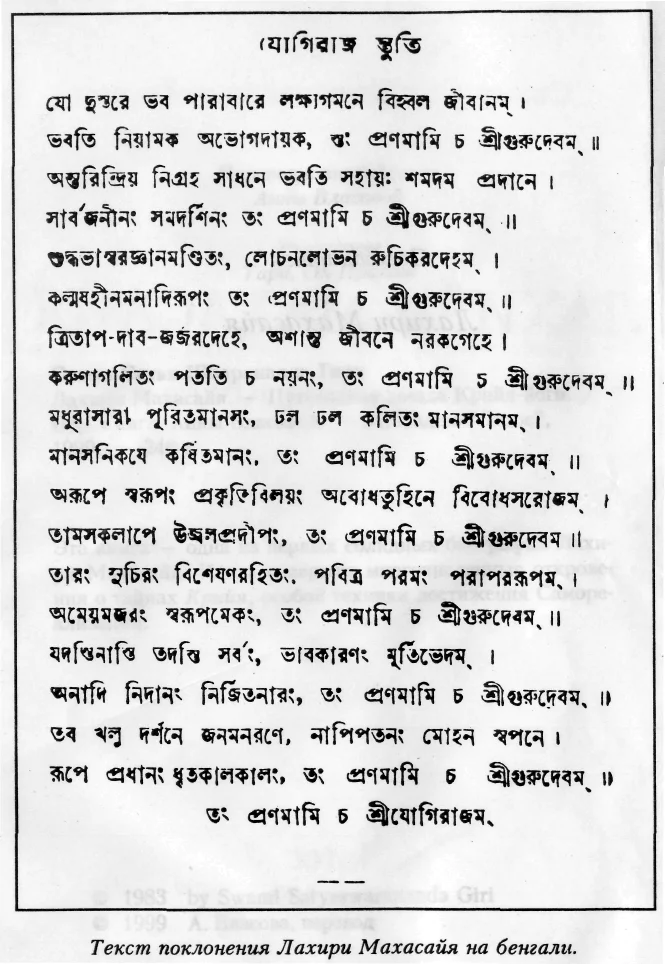 যোগিরাজ স্তুতি
যো দুস্তরে ভব পারাবারে লক্ষ্যগমনে বিহ্বল জীবানম্ ।
ভবতি নিয়ামক অভোগদায়ক, ত্তং প্রণমামি চ শ্রীগুরুদেবম্ ॥
অন্তরিন্দ্রিয় নিগ্রহ সাধনে ভবতি সহায়ঃ শমদম প্রদানে ।
সার্বজনীনং সমদর্শিনং তং প্রণমামি চ শ্রীগুরুদেবম্ ॥
শুদ্ধভাস্বরজ্ঞানমণ্ডিতং, লোচনলোভন রুচিকরদেহম্ ।
কল্মষহীনমনাদিরূপং তং প্রণমামি চ শ্রীগুরুদেবম্ ॥
ত্রিতাপ-দাব-জর্জরদেহে, অশান্ত জীবনে নরকগেহে ।
করুণাগলিতং পততি চ নয়নং, তং প্রণমামি চ শ্রীগুরুদেবম্ ॥
মধুরাসারা পূরিতমানসং, ঢল ঢল কলিতং মানসমানম্ ।
মানসনিকষে কষিতমানং, তং প্রণমামি চ শ্রীগুরুদেবম্ ॥
অরূপে স্বরূপং প্রকৃতিবিলয়ং অবোধতুহিনে বিবোধসরোজম্ ।
তামসকলাপে উজ্জলপ্রদীপং, তং প্রণমামি চ শ্রীগুরুদেবম ॥
তারং সুচিরং বিশেষণরহিতং, পবিত্র পরমং পরাপররূপম্ ।
অমেয়মজরং স্বরূপমেকং, তং প্রণমামি চ শ্রীগুরুদেবম্ ॥
যদস্তিনাস্তি তদস্তি সর্বং, ভাবকারণং মূর্তিভেদম্ ।
অনাদি নিদানং নির্জিতনারং, তং প্রণমামি চ শ্রীগুরুদেবম্ ॥
তব খলু দর্শনে জনমনরণে, নাপিপতনং মোহন স্বপনে ।
রূপে প্রধানং ধৃতকালকালং, তং প্রণমামি চ শ্রীগুরুদেবম্ ॥
তং প্রণমামি চ শ্রীযোগিরাজম্
© 1983 by Swami Satyeswarananda Giri
© 1999 А. Власова, перевод
Текст поклонения Лахири Махасайя на бенгали.